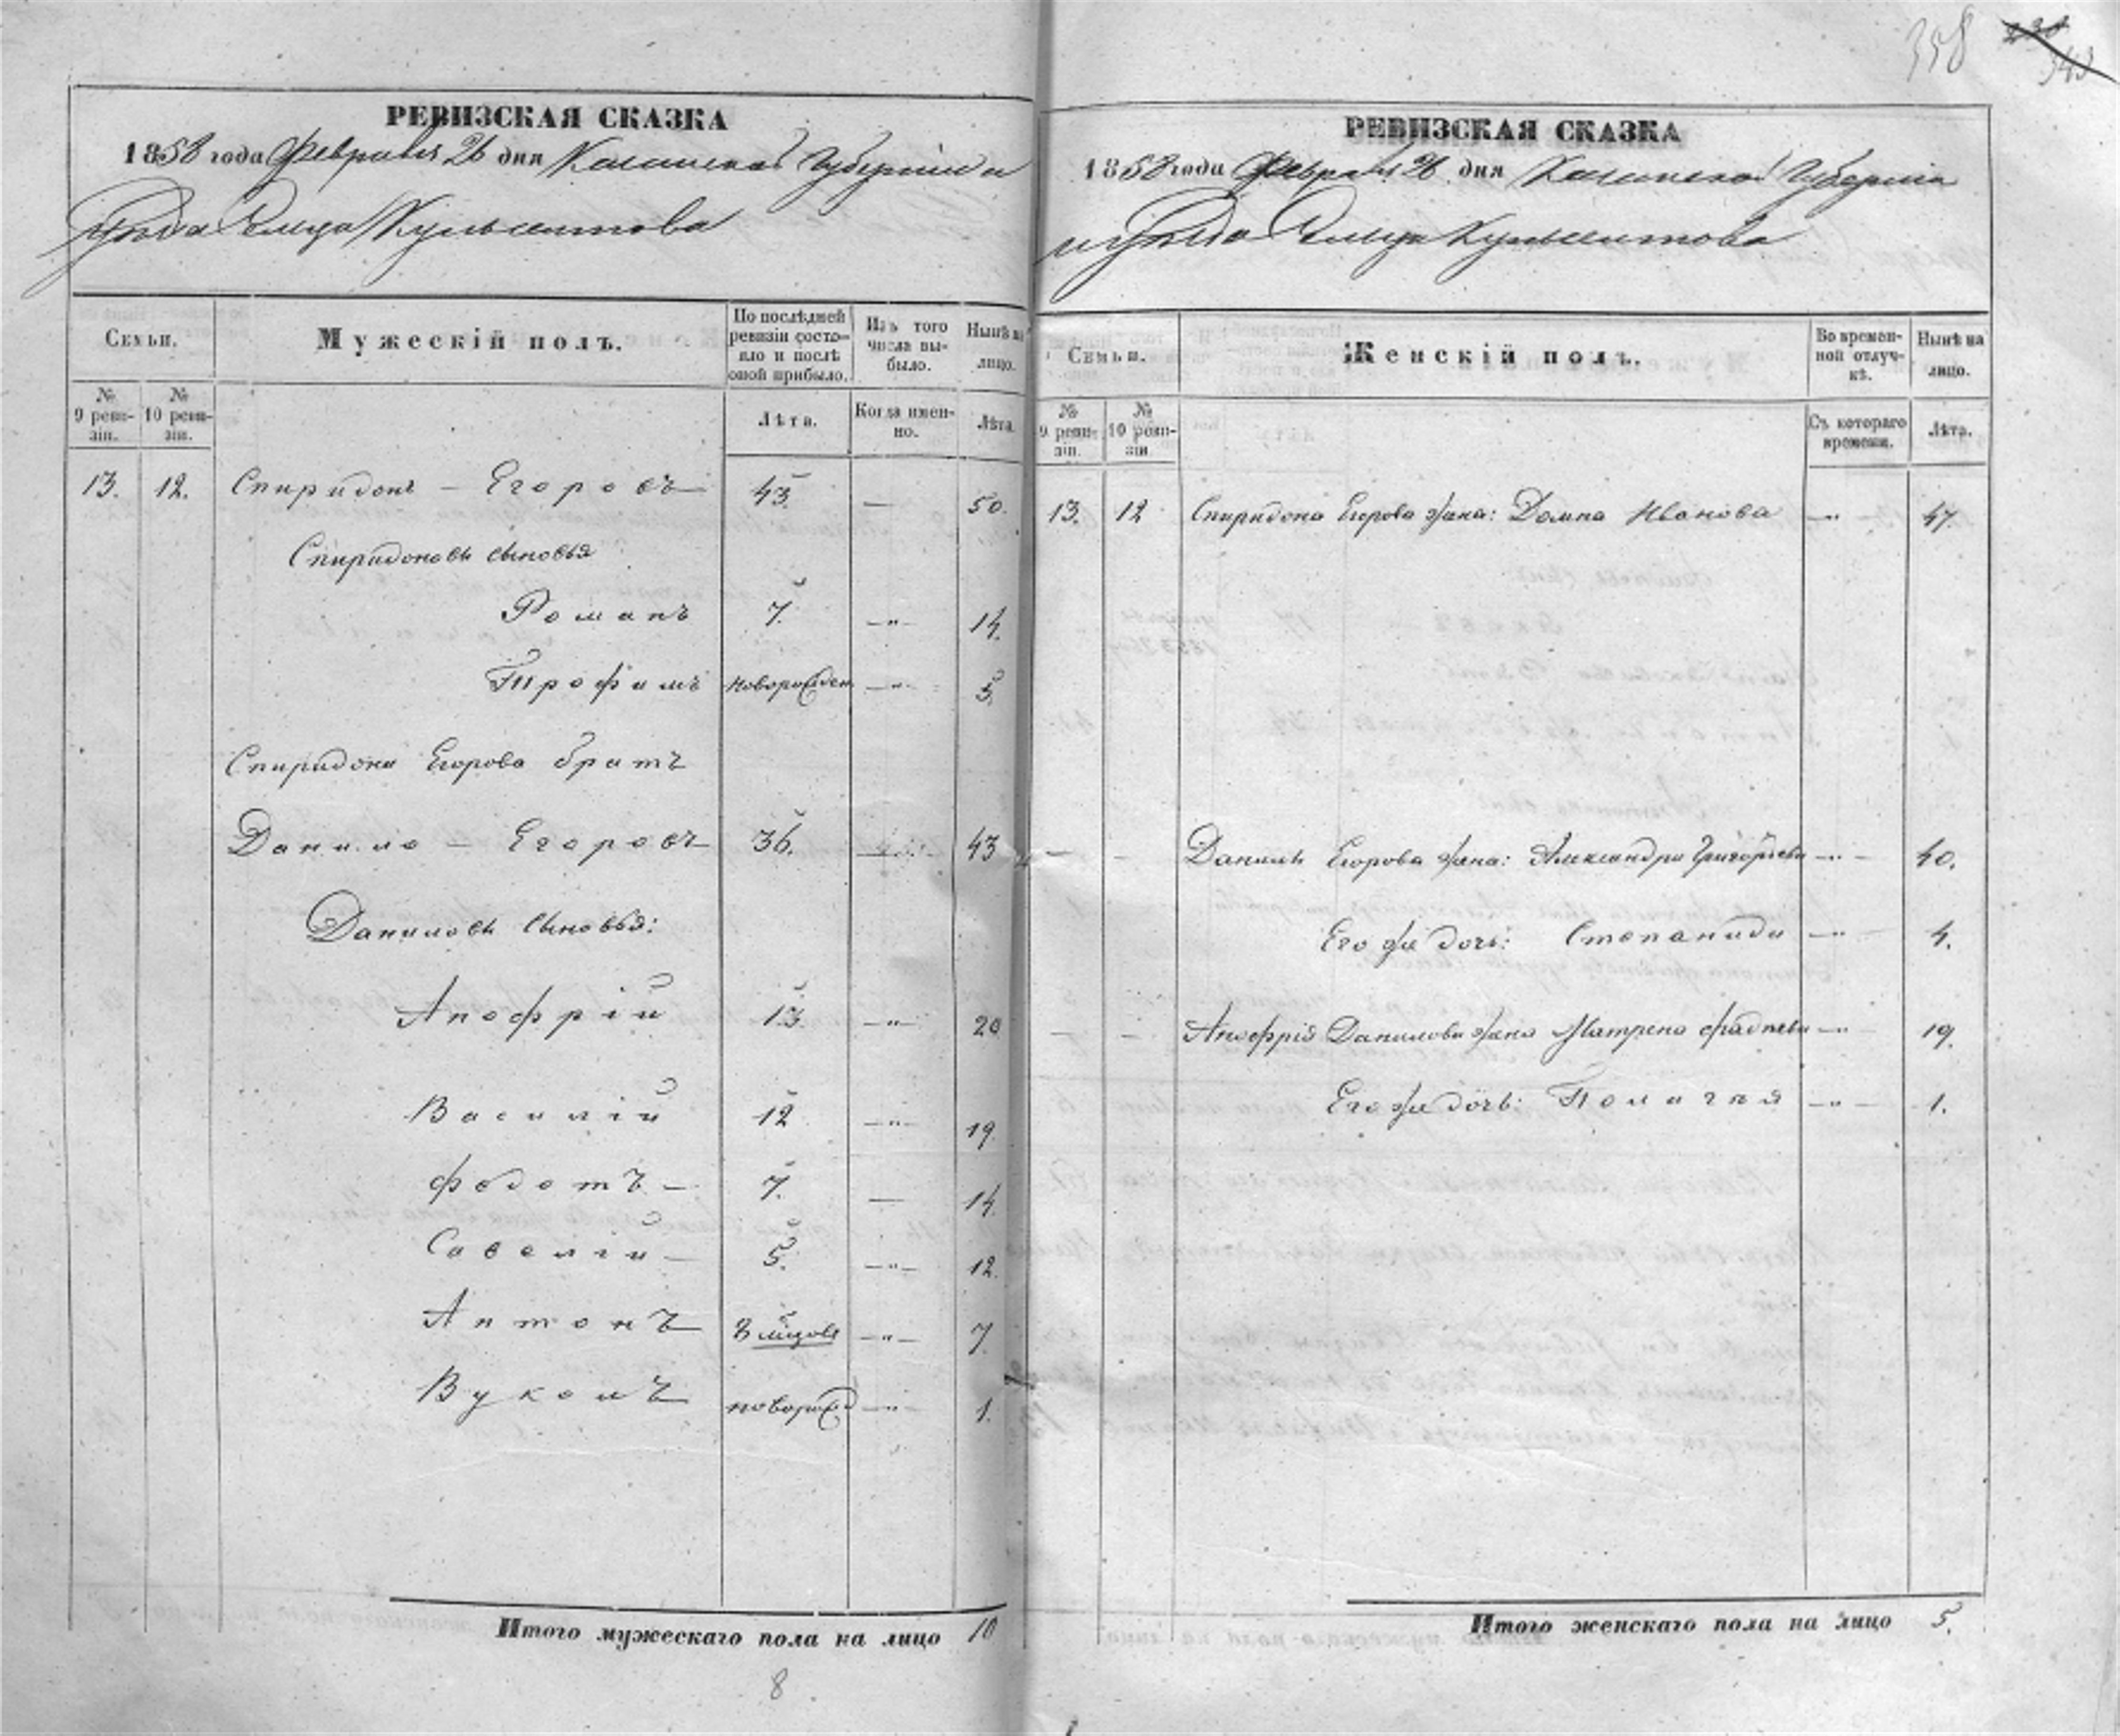 358
343
РЕВИЗСКАЯ СКАЗКА
1858 года Февраля 26 дня Губерніи и
уѣзда
Семьи.
Мужескій полъ.
По послѣдней ревизіи состояло и послѣ оной прибыло.
Изъ того числа выбыло.
Нынѣ на лицо.
№ 9 ревизіи.
№ 10 ревизіи.
Лѣта.
Когда именно.
Лѣта.
13. 12. Спиридонъ — Егоровъ 43 — 50.
Спиридоновы сыновья
Романъ 7. —"— 14.
Трофимъ новорожден —"— 5.
Спиридона Егорова братъ
Данило — Егоровъ 36. 43
Даниловы сыновья:
Анофрій 13. —"— 20
Василій 12 —"— 19.
Федотъ — 7. — 14.
Савелій — 5. —"— 12.
Антонъ —"— 7.
Вуколъ новорожд —"— 1.
Итого мужескаго пола на лицо 10
8
РЕВИЗСКАЯ СКАЗКА
1858 года Февраля 26 дня Губерніи
и уѣзда
Семьи.
Женскій полъ.
Во временной отлучкѣ.
Нынѣ на лицо.
№ 9 ревизіи.
№ 10 ревизіи
Съ котораго времени.
Лѣта.
13. 12 Спиридона Егорова жена: Домна Иванова —"— 47.
— — Данилы Егорова жена: Александра Григорьева —"— 40.
Его же дочь: Степанида —"— 4.
— — Анофрія Данилова жена Матрена Фадѣева —"— 19.
Его же дочь: Пелагея —"— 1.
Итого женскаго пола на лицо 5.